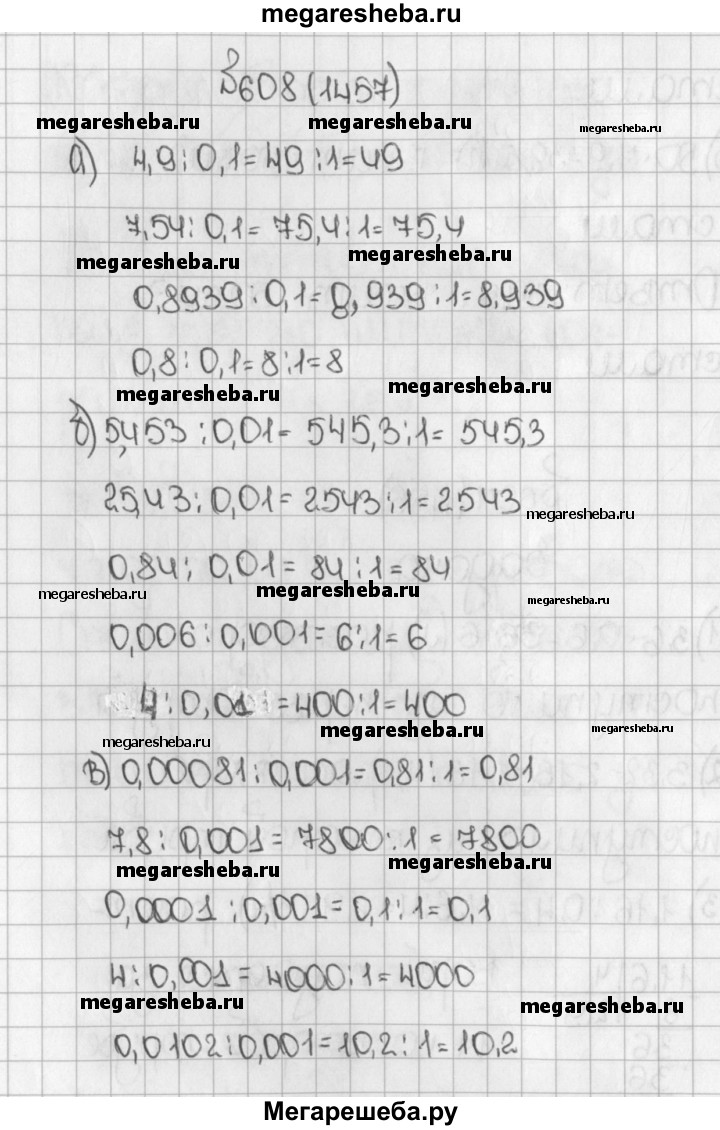 megaresheba.ru
№608 (1457)
megaresheba.ru megaresheba.ru megaresheba.ru
а) 4,9 : 0,1 = 49 : 1 = 49
7,54 : 0,1 = 75,4 : 1 = 75,4
megaresheba.ru megaresheba.ru
0,8939 : 0,1 = 8,939 : 1 = 8,939
0,8 : 0,1 = 8 : 1 = 8
megaresheba.ru megaresheba.ru
б) 5,453 : 0,01 = 545,3 : 1 = 545,3
25,43 : 0,01 = 2543 : 1 = 2543
megaresheba.ru
0,84 : 0,01 = 84 : 1 = 84
megaresheba.ru megaresheba.ru megaresheba.ru
0,006 : 0,001 = 6 : 1 = 6
4 : 0,01 = 400 : 1 = 400
megaresheba.ru megaresheba.ru megaresheba.ru
в) 0,00081 : 0,001 = 0,81 : 1 = 0,81
7,8 : 0,001 = 7800 : 1 = 7800
megaresheba.ru megaresheba.ru
0,0001 : 0,001 = 0,1 : 1 = 0,1
4 : 0,001 = 4000 : 1 = 4000
megaresheba.ru megaresheba.ru
0,0102 : 0,001 = 10,2 : 1 = 10,2
Мегарешеба.ру